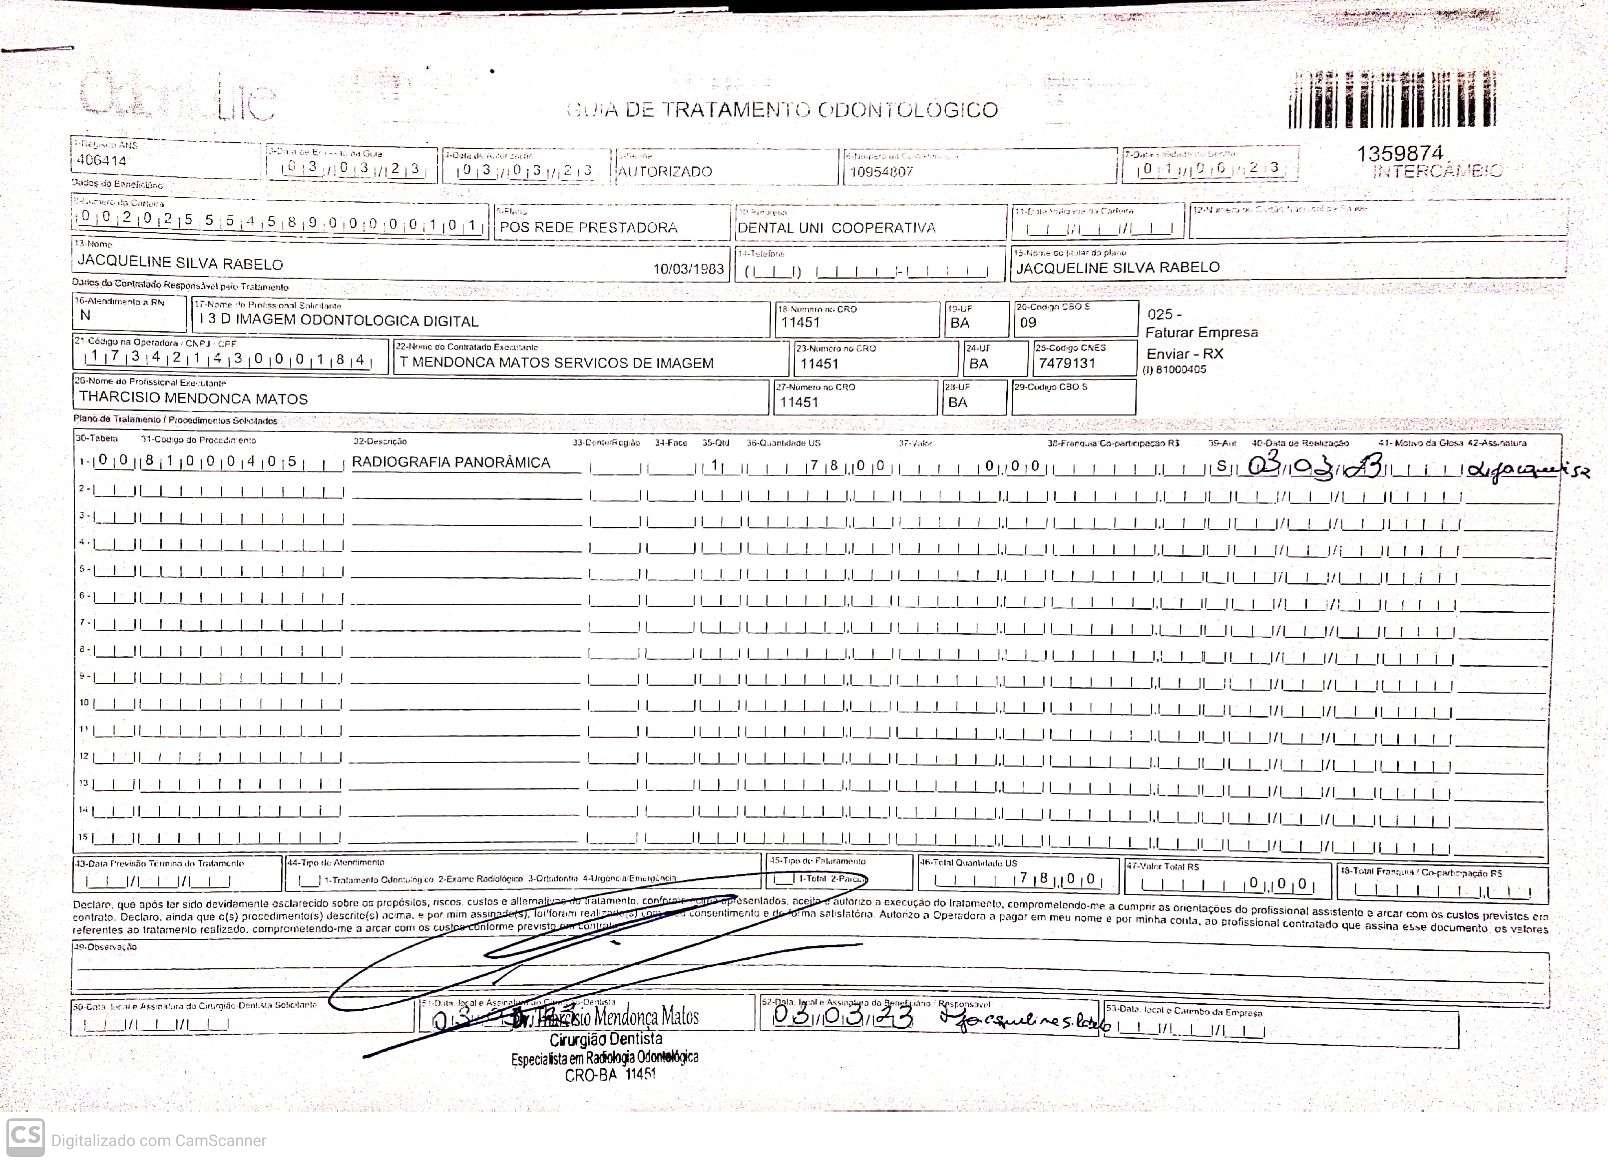 OdontoLife
GUIA DE TRATAMENTO ODONTOLÓGICO
1-Registro ANS
406414
2-Data de Emissão da Guia
03/03/23
3-Data de Autorização
03/03/23
AUTORIZADO
10954807
01/06/23
1359874
INTERCÂMBIO
Dados do Beneficiário
8-Número da Carteira
00202555458900000101
9-Plano
POS REDE PRESTADORA
10-Empresa
DENTAL UNI COOPERATIVA
11-Data Validade da Carteira
12-Número do Cartão Nacional de Saúde
13-Nome
JACQUELINE SILVA RABELO 10/03/1983
14-Telefone
15-Nome do titular do plano
JACQUELINE SILVA RABELO
Dados do Contratado Responsável pelo Tratamento
16-Atendimento a RN
N
17-Nome do Profissional Solicitante
I 3 D IMAGEM ODONTOLOGICA DIGITAL
18-Número no CRO
11451
19-UF
BA
20-Código CBO S
09
025 -
Faturar Empresa
Enviar - RX
(I) 81000405
21 Código na Operadora / CNPJ / CPF
17342143000184
22-Nome do Contratado Executante
T MENDONCA MATOS SERVICOS DE IMAGEM
23-Número no CRO
11451
24-UF
BA
25-Código CNES
7479131
26-Nome do Profissional Executante
THARCISIO MENDONCA MATOS
27-Número no CRO
11451
28-UF
BA
29-Código CBO S
Plano de Tratamento / Procedimentos Solicitados
30-Tabela 31-Código do Procedimento 32-Descrição 33-Dente/Região 34-Face 35-Qtd 36-Quantidade US 37-Valor 38-Franquia Co-participação R$ 39-Aut 40-Data de Realização 41- Motivo da Glosa 42-Assinatura
1- 00 81000405 RADIOGRAFIA PANORÂMICA 1 78,00 0,00 S 03/03/23
2-
3-
4-
5-
6-
7-
8-
9-
10
11
12
13
14
15
43-Data Previsão Término do Tratamento
44-Tipo de Atendimento
1-Tratamento Odontológico 2-Exame Radiológico 3-Ortodontia 4-Urgência/Emergência
45-Tipo de Faturamento
1-Total 2-Parcial
46-Total Quantidade US
78,00
47-Valor Total R$
0,00
48-Total Franquia / Co-participação R$
Declaro, que após ter sido devidamente esclarecido sobre os propósitos, riscos, custos e alternativas do tratamento, conforme acima apresentados, aceito e autorizo a execução do tratamento, comprometendo-me a cumprir as orientações do profissional assistente e arcar com os custos previstos em
contrato. Declaro, ainda que o(s) procedimento(s) descrito(s) acima, e por mim assinado(s), foi/foram realizado(s) com meu consentimento e de forma satisfatória. Autorizo a Operadora a pagar em meu nome e por minha conta, ao profissional contratado que assina esse documento, os valores
referentes ao tratamento realizado, comprometendo-me a arcar com os custos conforme previsto em contrato.
49-Observação
50-Data, local e Assinatura do Cirurgião Dentista Solicitante
51-Data, local e Assinatura do Cirurgião-Dentista
Dr. Tharcísio Mendonça Matos
Cirurgião Dentista
Especialista em Radiologia Odontológica
CRO-BA 11451
52-Data, local e Assinatura do Beneficiário / Responsável
03/03/23 Jacqueline S. Rabelo
53-Data, local e Carimbo da Empresa
CS Digitalizado com CamScanner